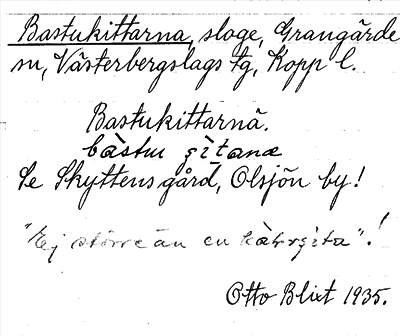 Bastukittarna, sloge, Grangärde
sn, Västerbergslags tg, Kopp l.
Bastukittarnä.
bàstu çìtanæ
Se Skyttens gård, Olsjön by!
"Ej större än en kàlvçìta".!
Otto Blixt 1935.